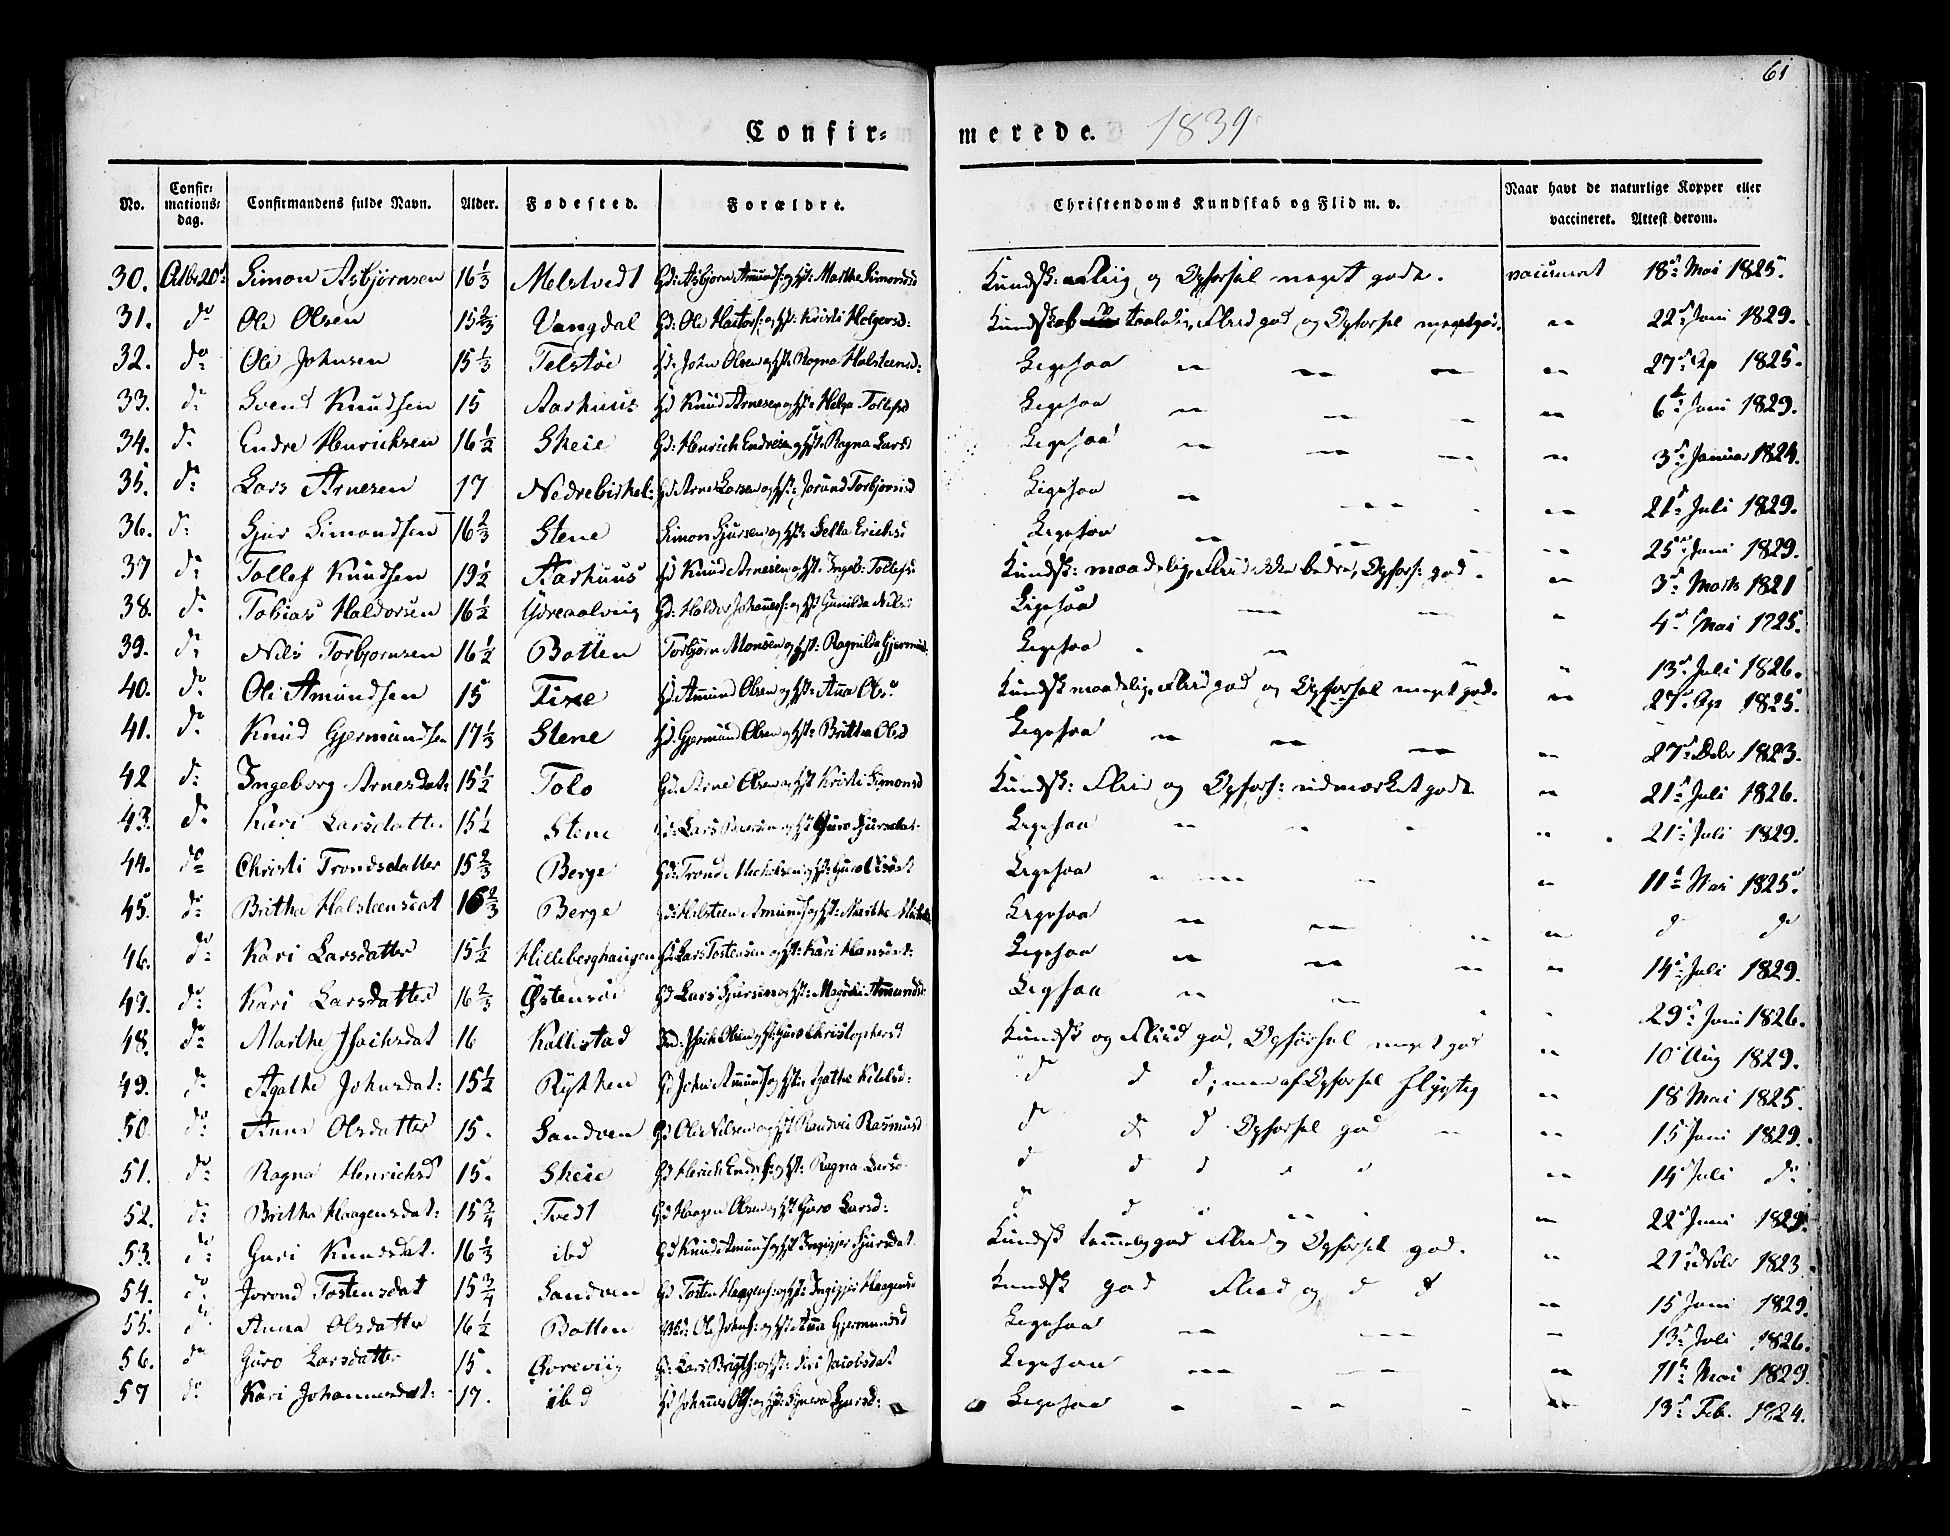 61
Confir= merede. 1839
No. Confir= mations= dag. Confirmandens fulde Navn. Alder. Fødested. Forældre. Christendoms Kundskab og Flid m. v. Naar havt de naturlige Kopper eller vaccineret. Attest derom.
30. Simon Asbjörnsen 16 1/3 Melstvedt Gd: Asbjörn Amunds: og Hst: Marthe Simonsd Kundsk: Fliig og Opförsel meget gode. vaccineret 18d: Mai 1825.
31. do Ole Olsen 15 2/3 Vangdal Gd: Ole og Hst: Kristi Holgersd: Kundskab Flid god og Opförsel meget god. 22d: Juni 1829.
32. do Ole Johnsen 15 1/3 Telstöe Gd: John Olsen og Hst: Ragna Halsteensd: Ligesaa 27d: Ap 1825.
33. do Svend Knudsen 15 Aarhuus Gd Knud Arnesen og Hst: Helga Tollefsd Ligesaa 6te Juni 1829.
34. do Endre Henriksen 16 1/2 Skeie Gd: Henrich Endresen og Hst: Ragna Larsd Ligesaa 3d: Januar 1824.
35. do Lars Arnesen 17 Nedrebirkel: Gd Arne Larsen og Hst: Jorund Torbjörnsd Ligesaa 21d: Juli 1829.
36. do Sjur Simondsen 16 2/3 Stene Simon Sjursen og Hst: Ericksd Ligesaa 25d: Juni 1829.
37 do Tollef Knudsen 19 1/2 Aarhuus Gd Knud Arnesen og Hst: Ingeb: Tollefsd Kundsk: maadelig, Flid ikke bedre, Opförs: god. 3d: Marts 1821
38. do Tobias Haldorsen 16 1/2 Ydreaalvig Gd: Haldor Johannes: og Hst Gunilda Nilsd Ligesaa 4d: Mai 1825.
39. do Nils Torbjornsen 16 1/2 Botten Torbjörn Monsen og Hst: Ragnilda Gjermunds: Ligesaa 13d: Juli 1826.
40. do Ole Amundsen 15 Fixe Gd: Amund Olsen og Hst: Anna Olsd Kundsk maadelig, Flid god og Opförsel meget god. 27d: Apr 1825.
41. do Knud Gjermundsen 17 1/3 Stene Gd: Gjermund Olsen og Hst: Brittha Olsd Ligesaa 27d: Debr 1823.
42 do Ingeborg Arnesdat: 15 1/2 Tolo Gd: Arne Olsen og Hst Kristi Simonsd Kundsk: Flid og Opförs: udmærket gode 21d: Juli 1826.
43. do Kari Larsdatter 15 1/2 Stene Gd: Lars og Hst Guro Sjursdat: Ligesaa 21d: Juli 1829.
44. do Christi Trondsdatter 15 2/3 Berge Gd: Trond og Hst: Ligesaa 11te Mai 1825.
45. do Britha Halsteensdat 16 2/3 Berge Gd: Halsteen Amunds og Hst: Marithe Ligesaa d do
46. do Kari Larsdatter 15 1/2 Hilleberghaugen Gd: Lars Tostensen og Hst: Kari Hansdat: Ligesaa 14d: Juli 1829.
47. do Kari Larsdatter 16 2/3 Östensöe Gd Lars Sjursen og Hst: Magdeli Amundsd: Ligesaa 29d: Juni 1826.
48. do Marthe Isaksdat 16 Kollestad Isach Olsen og Hst: Guro Christophersd Kundsk og Fliid god, Opförsel meget god 10 Aug 1829.
49. do Agathe Johnsdat: 15 1/2 Rykken Gd John Amunds og Hst: Agathe d d d; men af Opförsel flygtig 18 Mai 1825.
50 do Anna Olsdatter 15. Sandven Gd Ole Nilsen og Hst Randvei Rasmusd d d d Opförsel god 15 Juni 1829.
51. do Ragna Henrichsd 15. Skeie Gd Henrich og Hst: Ragna Larsd d d d 14d Juli do
52. do Britha Haagensdat: 15 3/4 Tvedt Gd Haagen Olsen og Hst Guro Larsd: d d 22d Juni 1829.
53. do Guri Knudsdat. 16 1/3 ibd Gd Knud Amunds og Hst Ingeger Sjursdat Kundsk temmelig god Flid og Opförsel god. 21d: Nobr 1823
54. do Jorond Tostensdat 15 3/4 Sandven Gd Tosten Haagens: og Hst: Haagensd Kundsk god Flid og d d 15 Juni 1829.
55. do Anna Olsdatter 16 1/2 Botten Ole Johns: og Hst: Anna Gjermundsd Ligesaa 13d: Juli 1826.
56. do Guro Larsdatter 15. Övreviig Gd: Lars og Hst: Siri Jacobsdat Ligesaa 11te Mai 1829.
57 do Kari Johannesdat: 17. ibd Gd Johannes Ols: og Hst: Sjursd: Ligesaa 13d: Feb. 1824.